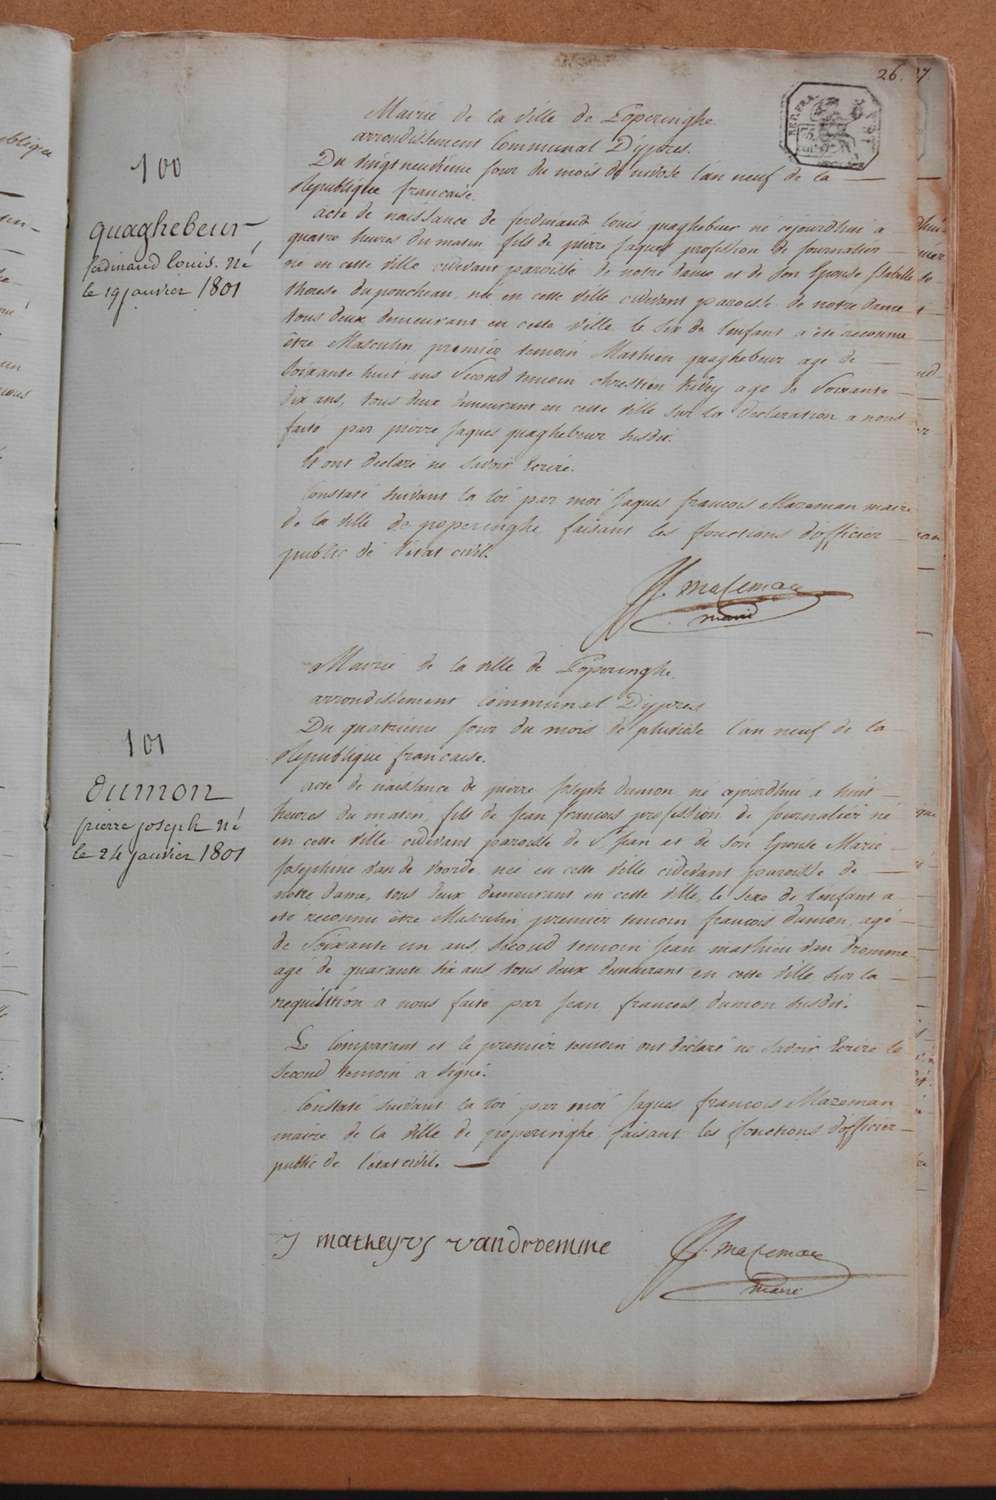 26. 27.
REP. FRA.
Mairie de la ville de Poperinghe
arrondissement Communal D'ypres.
100
Du vingt neuvième jour du mois de nivose l'an neuf de la
Republique francaise.
quaghebeur
ferdinand louis. Né
le 19 janvier 1801
acte de naissance de ferdinand louis quaghebeur né cejourdhui a
quatre heures du matin fils de pierre Jaques profession de journalier
né en cette ville cidevant paroisse de notre dame et de son Epouse Isabelle
therese duponcheau, née en cette ville cidevant paroisse de notre dame
tous deux demeurant en cette ville le sex de l'enfant a été reconnu
être Masculin premier temoin Mathieu quaghebeur age de
soixante huit ans second temoin christien age de soixante
dix ans, tous deux demeurant en cette ville sur la declaration a nous
faite par pierre Jaques quaghebeur susdit.
Et ont declaré ne savoir Ecrire.
Constaté suivant la loi par moi Jaques francois Mazeman maire
de la ville de poperinghe, faisant les fonctions d'officier
public de l'état civil.
JF. Mazeman
maire
Mairie de la ville de Poperinghe.
arrondissement communal D'ypres
101
Du quatrieme jour du mois de pluviose l'an neuf de la
Republique francaise.
dumon
pierre joseph Né
le 24 janvier 1801
acte de naissance de pierre Joseph dumon né cejourdhui a huit
heures du matin, fils de Jean francois profession de journalier né
en cette ville cidevant paroisse de St Jean et de son Epouse Marie
Josephine van de voorde née en cette ville cidevant paroisse de
notre dame, tous deux demeurant en cette ville, le sexe de l'enfant a
eté reconnu être Masculin premier temoin francois dumon, agé
de soixante un ans, second temoin Jean mathieu van Dromme
agé de quarante six ans tous deux demeurant en cette ville, sur la
requisition a nous faite par Jean francois dumon susdit.
Le Comparant et le premier temoin ont déclaré ne savoir Ecrire le
second temoin a signé.
Constaté suivant la loi par moi Jaques francois Mazeman
maire de la ville de poperinghe, faisant les fonctions d'officier
public de l'état civil.
J matheyus vandroemme
JF. Mazeman
maire